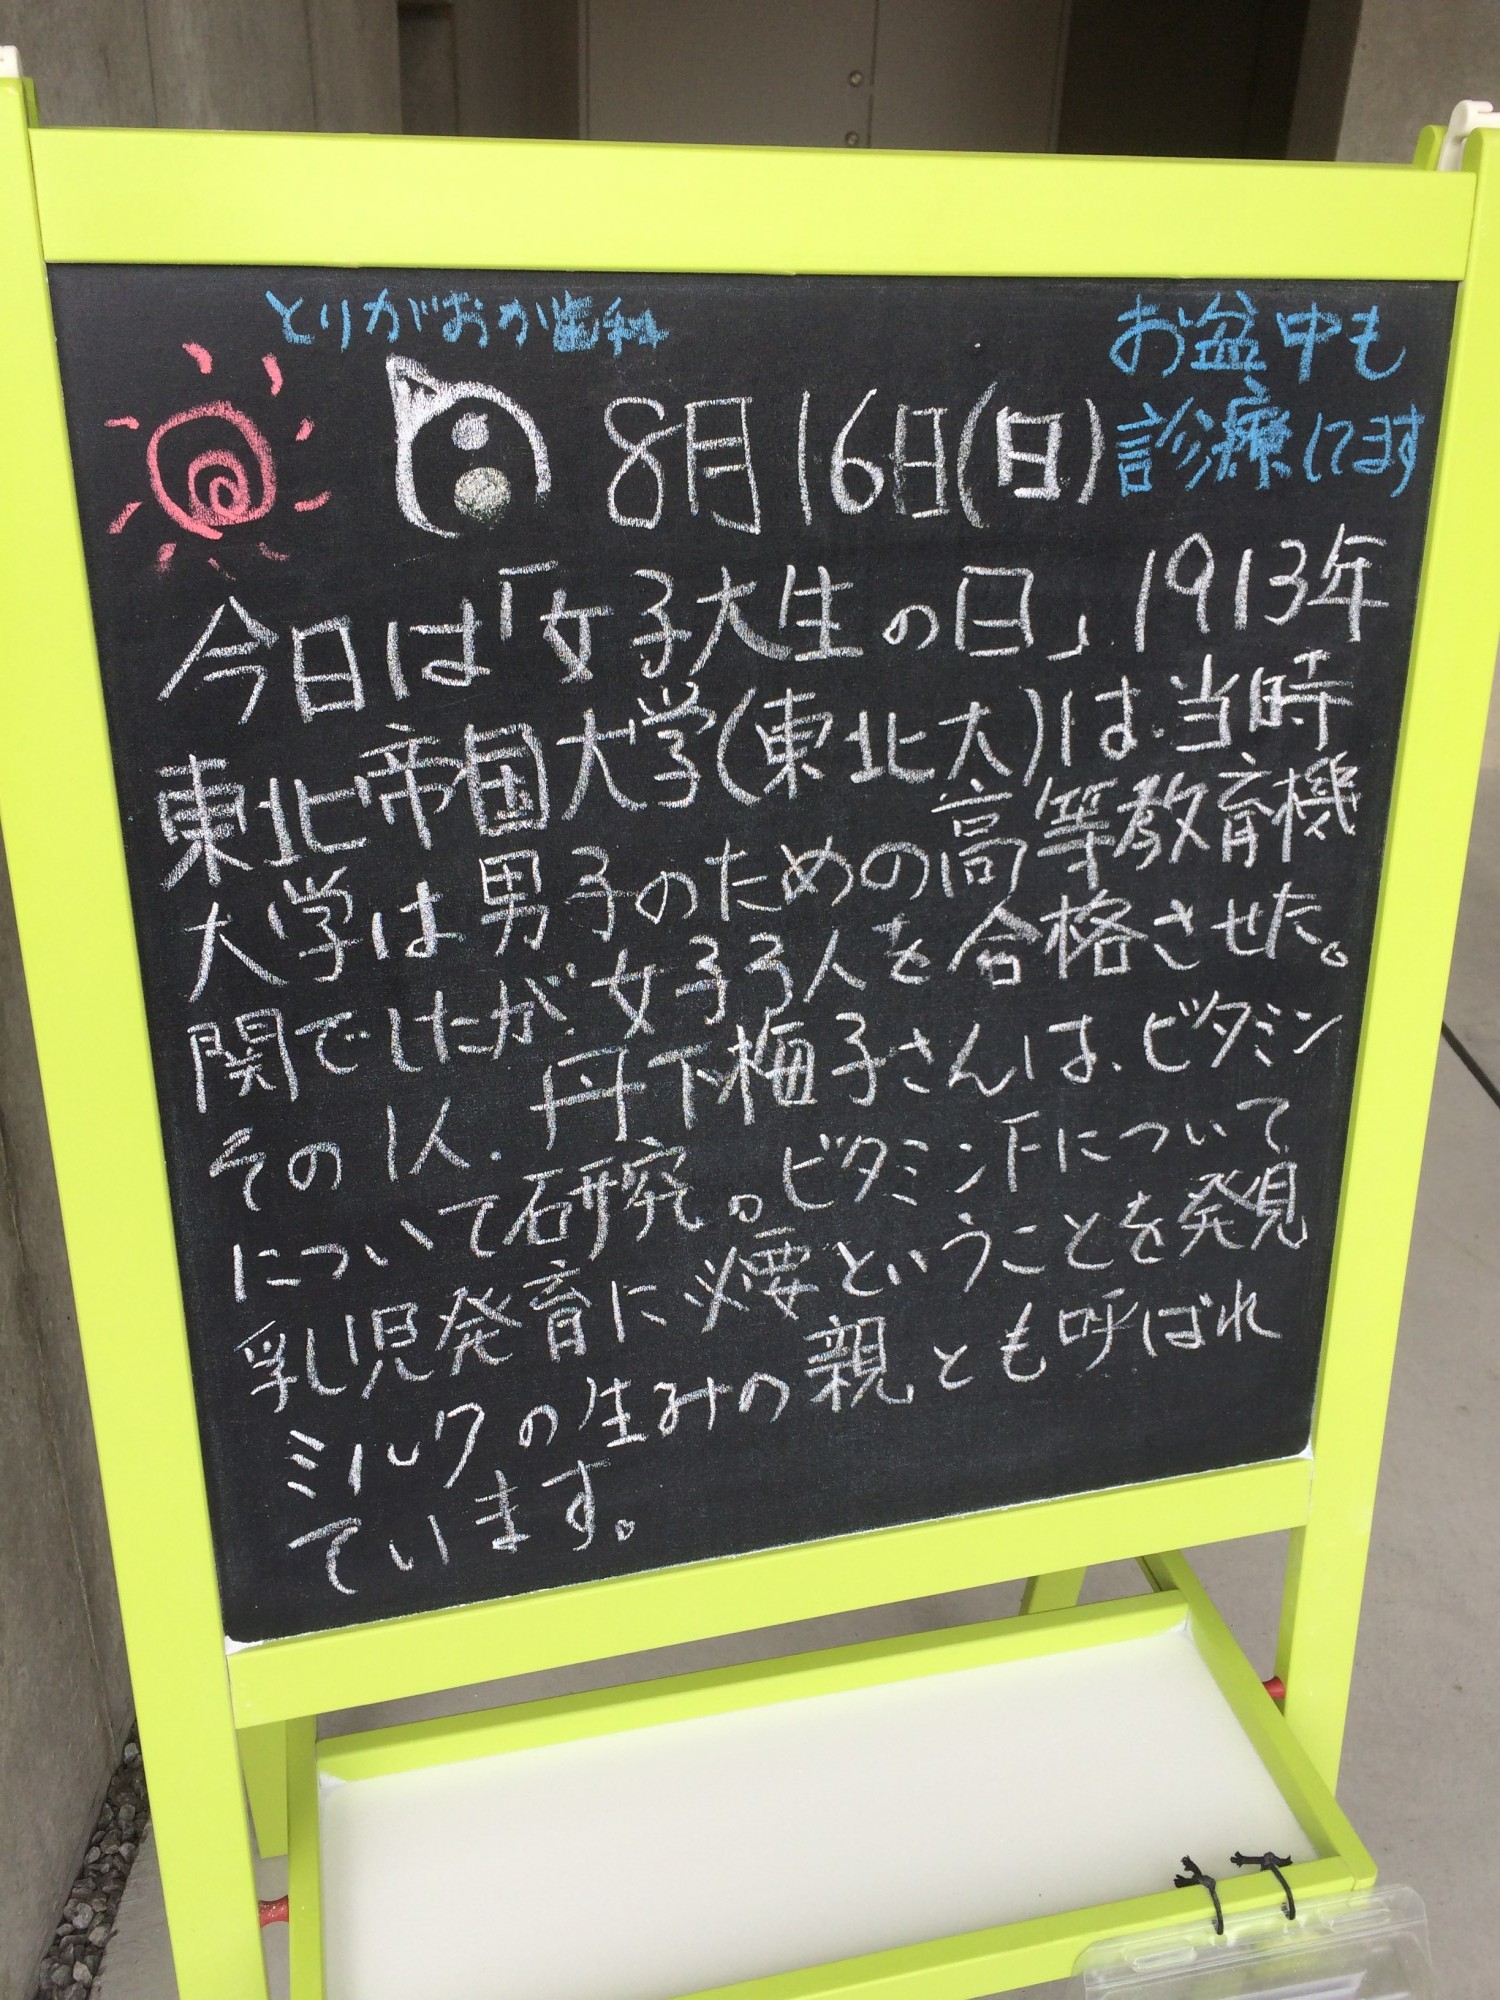 とりがおか歯科
お盆中も
診療してます
8月16日(日)
今日は「女子大生の日」1913年
東北帝国大学(東北大)は、当時
大学は男子のための高等教育機
関でしたが、女子3人を合格させた。
その1人、丹下梅子さんは、ビタミン
について研究。ビタミンFについて
乳児発育に必要ということを発見
ミルクの生みの親とも呼ばれ
ています。